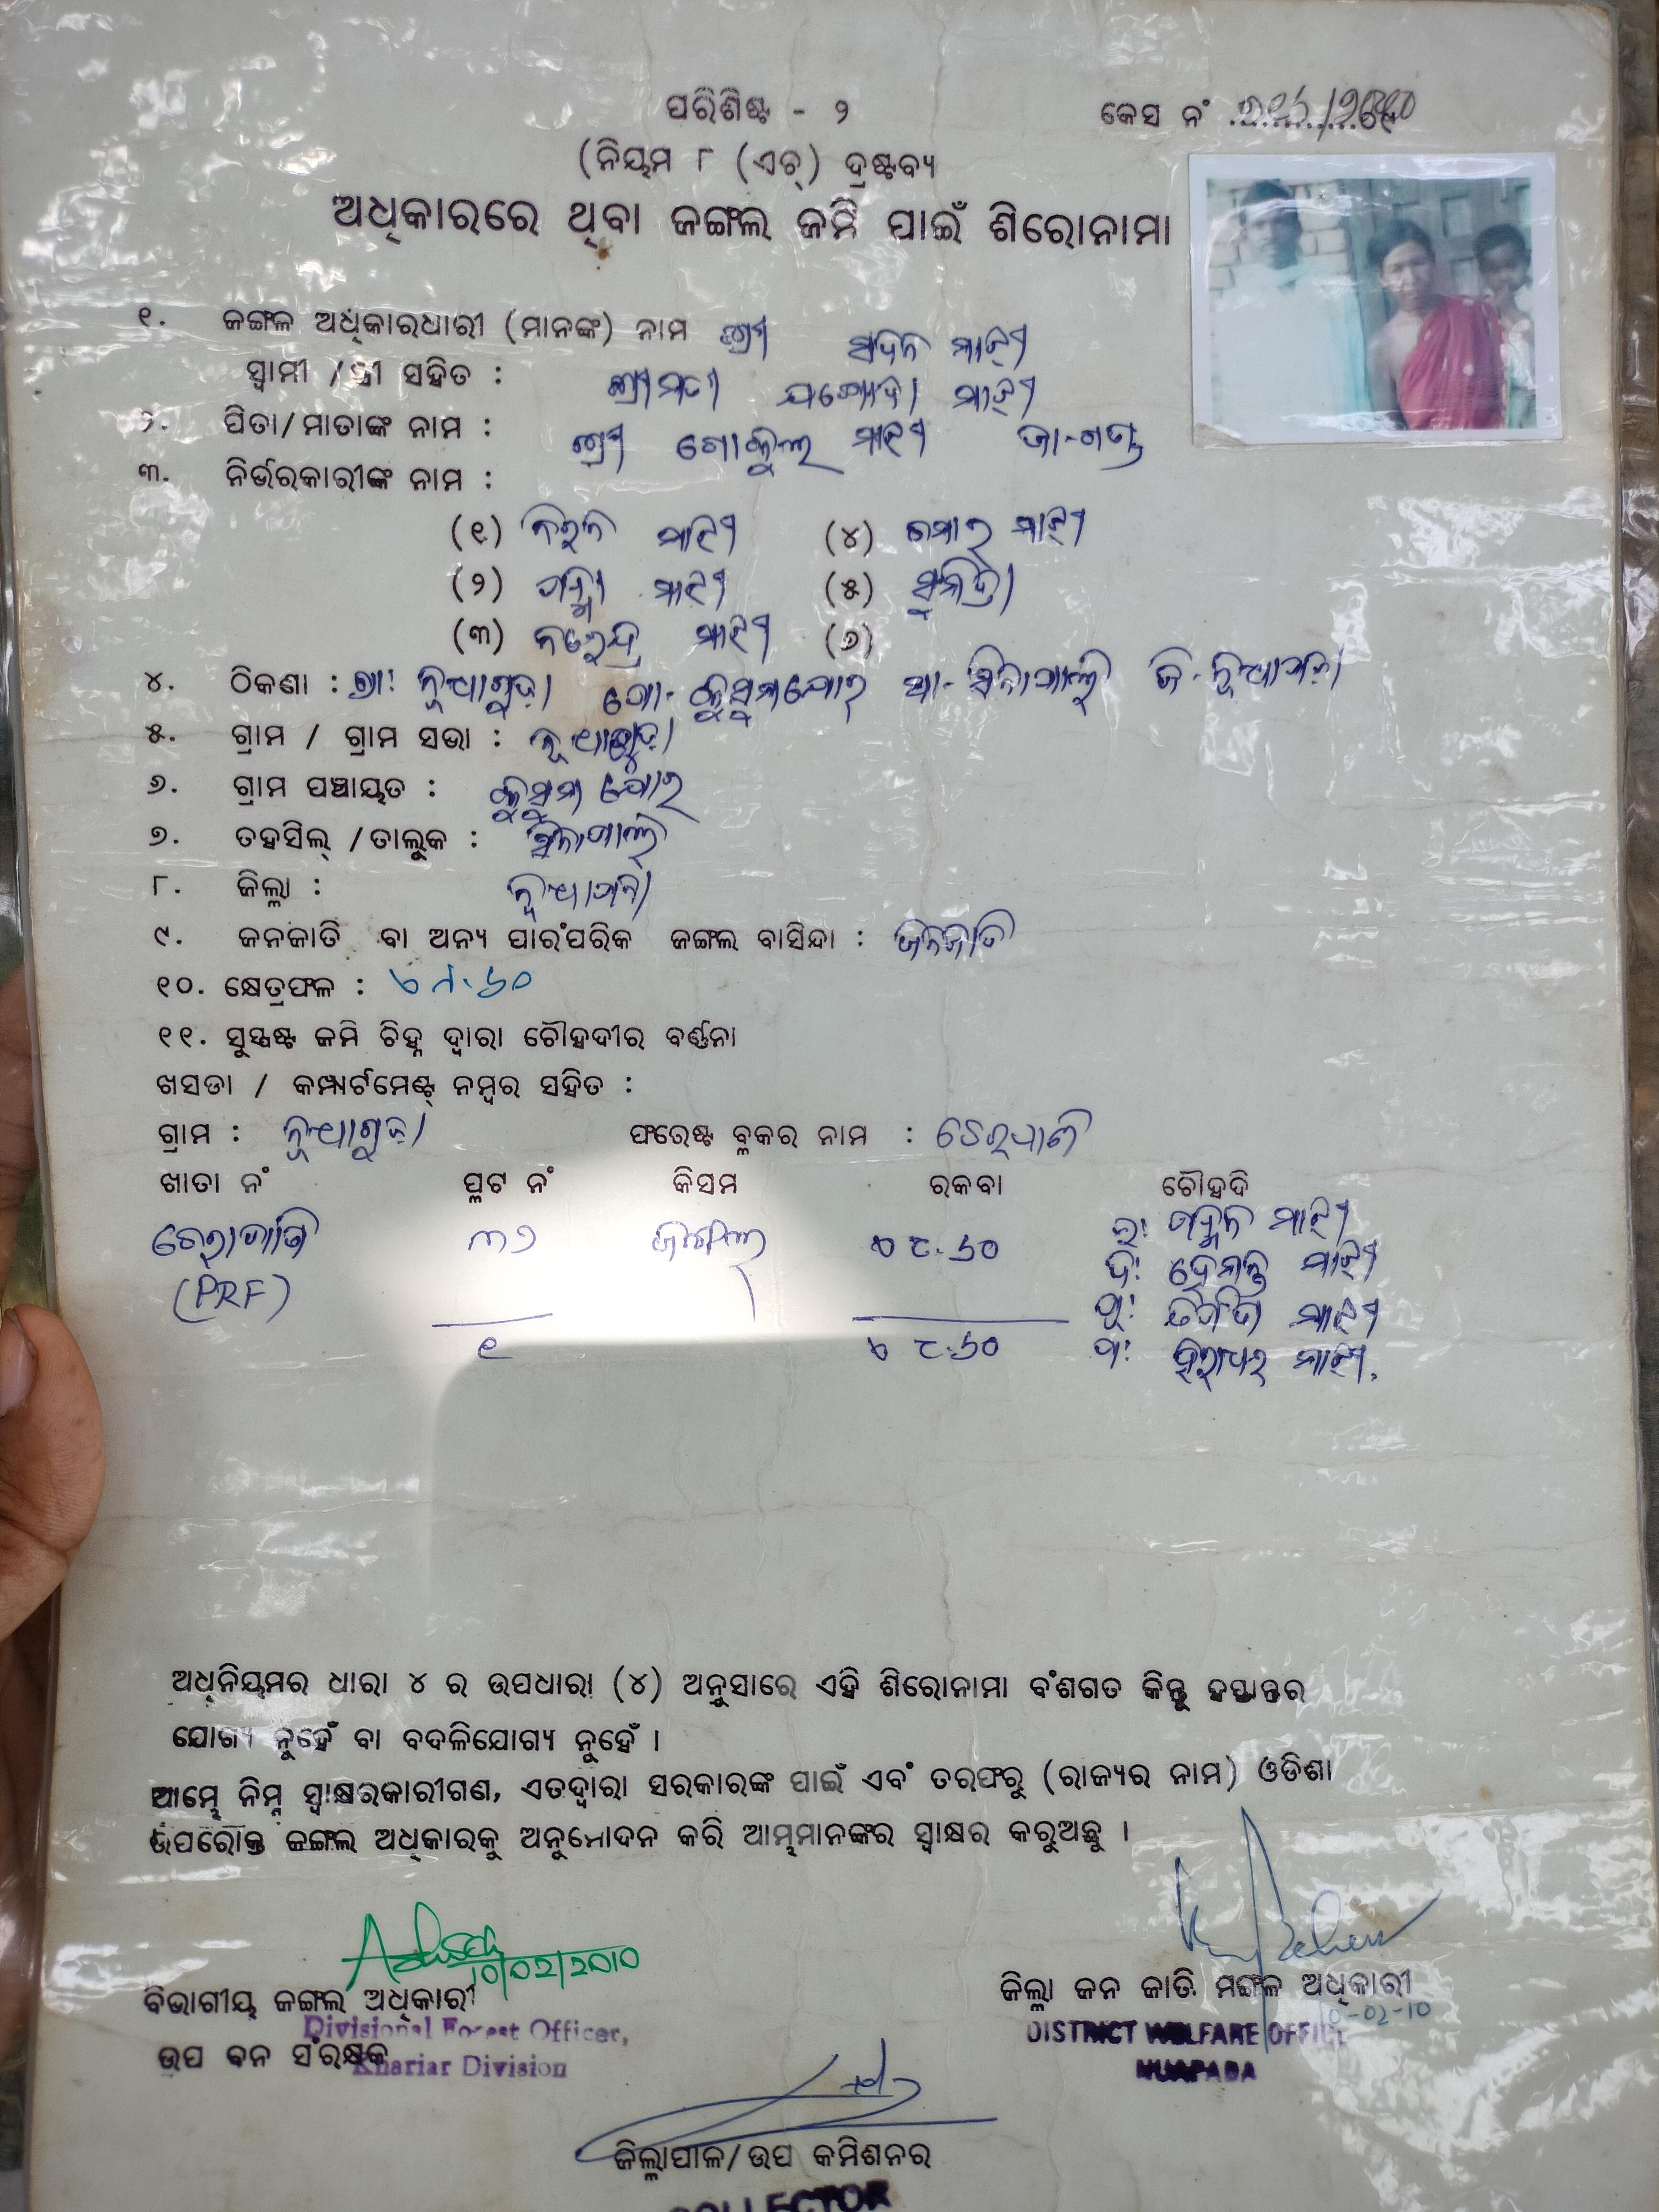 ପରିଶିଷ୍ଟ - ୨
କେସ ନଂ
(ନିୟମ ୮ (ଏଚ୍) ଦ୍ରଷ୍ଟବ୍ୟ
ଅଧିକାରରେ ଥିବା ଜଙ୍ଗଲ ଜମି ପାଇଁ ଶିରୋନାମା
୧. ଜଙ୍ଗଳ ଅଧିକାରଧାରୀ (ମାନଙ୍କ) ନାମ ଶ୍ରୀ ମାଝୀ
ସ୍ୱାମୀ /ସ୍ତ୍ରୀ ସହିତ : ଶ୍ରୀମତୀ ଯଶୋଦା ମାଝୀ
୨. ପିତା/ମାତାଙ୍କ ନାମ : ଶ୍ରୀ ଗୋକୁଲ ମାଝୀ ଜା-ଗଣ୍ଡ
୩. ନିର୍ଭରକାରୀଙ୍କ ନାମ :
(୧) ମାଝୀ (୪) ମାଝୀ
(୨) ମାଝୀ (୫) ସୁମିତ୍ରା
(୩) ମାଝୀ (୬)
୪. ଠିକଣା : ନୂଆଗୁଡ଼ା ପୋ- କୁସୁମଯୋର ଥା- ସିନାପାଲି ଜି- ନୂଆପଡ଼ା
୫. ଗ୍ରାମ / ଗ୍ରାମ ସଭା : ନୂଆଗୁଡ଼ା
୬. ଗ୍ରାମ ପଞ୍ଚାୟତ : କୁସୁମ ଯୋର
୭. ତହସିଲ୍ /ତାଲୁକ : ସିନାପାଲି
୮. ଜିଲ୍ଲା : ନୂଆପଡ଼ା
୯. ଜନଜାତି ବା ଅନ୍ୟ ପାରଂପରିକ ଜଙ୍ଗଲ ବାସିନ୍ଦା : ଜନଜାତି
୧୦. କ୍ଷେତ୍ରଫଳ :
୧୧. ସୁସ୍ପଷ୍ଟ ଜମି ଚିହ୍ନ ଦ୍ୱାରା ଚୌହଦୀର ବର୍ଣ୍ଣନା
ଖସଡା / କମ୍ପାର୍ଟମେଣ୍ଟ୍ ନମ୍ବର ସହିତ :
ଗ୍ରାମ : ନୂଆଗୁଡ଼ା ଫରେଷ୍ଟ ବ୍ଲକର ନାମ :
ଖାତା ନଂ ପ୍ଲଟ ନଂ କିସମ ରକବା ଚୌହଦି
୩୭ ଜଙ୍ଗଲ ଉ: ମାଝୀ
(PRF) ଦ: ହେମନ୍ତ ମାଝୀ
ପୂ: ମାଝୀ
୧ ପ: ହିରାଧର ମାଝୀ.
ଅଧିନିୟମର ଧାରା ୪ ର ଉପଧାରା (୪) ଅନୁସାରେ ଏହି ଶିରୋନାମା ବଂଶଗତ କିନ୍ତୁ ହସ୍ତାନ୍ତର
ଯୋଗ୍ୟ ନୁହେଁ ବା ବଦଳିଯୋଗ୍ୟ ନୁହେଁ ।
ଆମ୍ଭେ ନିମ୍ନ ସ୍ୱାକ୍ଷରକାରୀଗଣ, ଏତଦ୍ଵାରା ସରକାରଙ୍କ ପାଇଁ ଏବଂ ତରଫରୁ (ରାଜ୍ୟର ନାମ) ଓଡିଶା
ଉପରୋକ୍ତ ଜଙ୍ଗଲ ଅଧିକାରକୁ ଅନୁମୋଦନ କରି ଆମ୍ଭମାନଙ୍କର ସ୍ୱାକ୍ଷର କରୁଅଛୁ ।
10/02/2010
ବିଭାଗୀୟ ଜଙ୍ଗଲ ଅଧିକାରୀ
Divisional Forest Officer,
ଉପ ବନ ସଂରକ୍ଷକ
Khariar Division
ଜିଲ୍ଲା ଜନ ଜାତି ମଙ୍ଗଳ ଅଧିକାରୀ
DISTRICT WELFARE OFFICE
NUAPADA
ଜିଲ୍ଲାପାଳ/ଉପ କମିଶନର
COLLECTOR